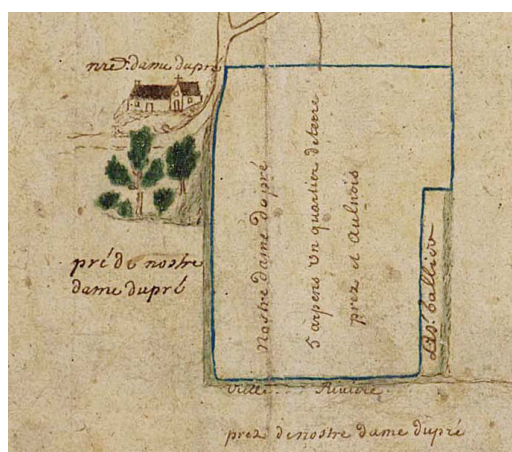 nre d. dame dupré
pré de nostre
dame dupré
Nostre dame dupré
5 arpens un quartier de terre
prez et aulnois
ballier
vielle Riviere
prez de nostre dame dupré